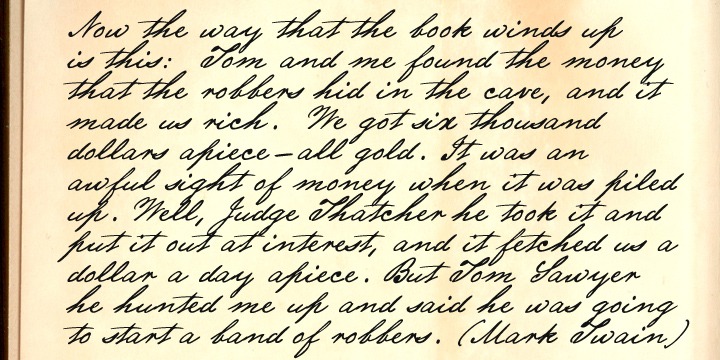 Now the way that the book winds up
is this: Tom and me found the money
that the robbers hid in the cave, and it
made us rich. We got six thousand
dollars apiece—all gold. It was an
awful sight of money when it was piled
up. Well, Judge Thatcher he took it and
put it out at interest, and it fetched us a
dollar a day apiece. But Tom Sawyer
he hunted me up and said he was going
to start a band of robbers. (Mark Twain)